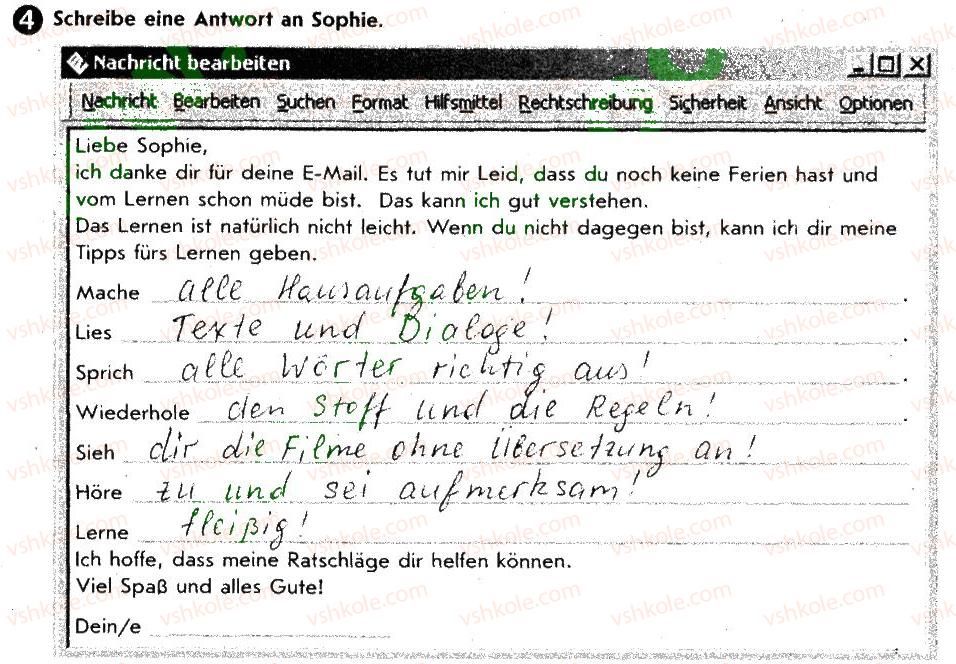 4 Schreibe eine Antwort an Sophie.
Nachricht bearbeiten
Nachricht Bearbeiten Suchen Format Hilfsmittel Rechtschreibung Sicherheit Ansicht Optionen
Liebe Sophie,
ich danke dir für deine E-Mail. Es tut mir Leid, dass du noch keine Ferien hast und
vom Lernen schon müde bist. Das kann ich gut verstehen.
Das Lernen ist natürlich nicht leicht. Wenn du nicht dagegen bist, kann ich dir meine
Tipps fürs Lernen geben.
Mache alle Hausaufgaben! .
Lies Texte und Dialoge! .
Sprich alle Wörter richtig aus! .
Wiederhole den Stoff und die Regeln! .
Sieh dir die Filme ohne Übersetzung an!
Höre zu und sei aufmerksam!
Lerne fleißig!
Ich hoffe, dass meine Ratschläge dir helfen können.
Viel Spaß und alles Gute!
Dein/e
vshkole.com